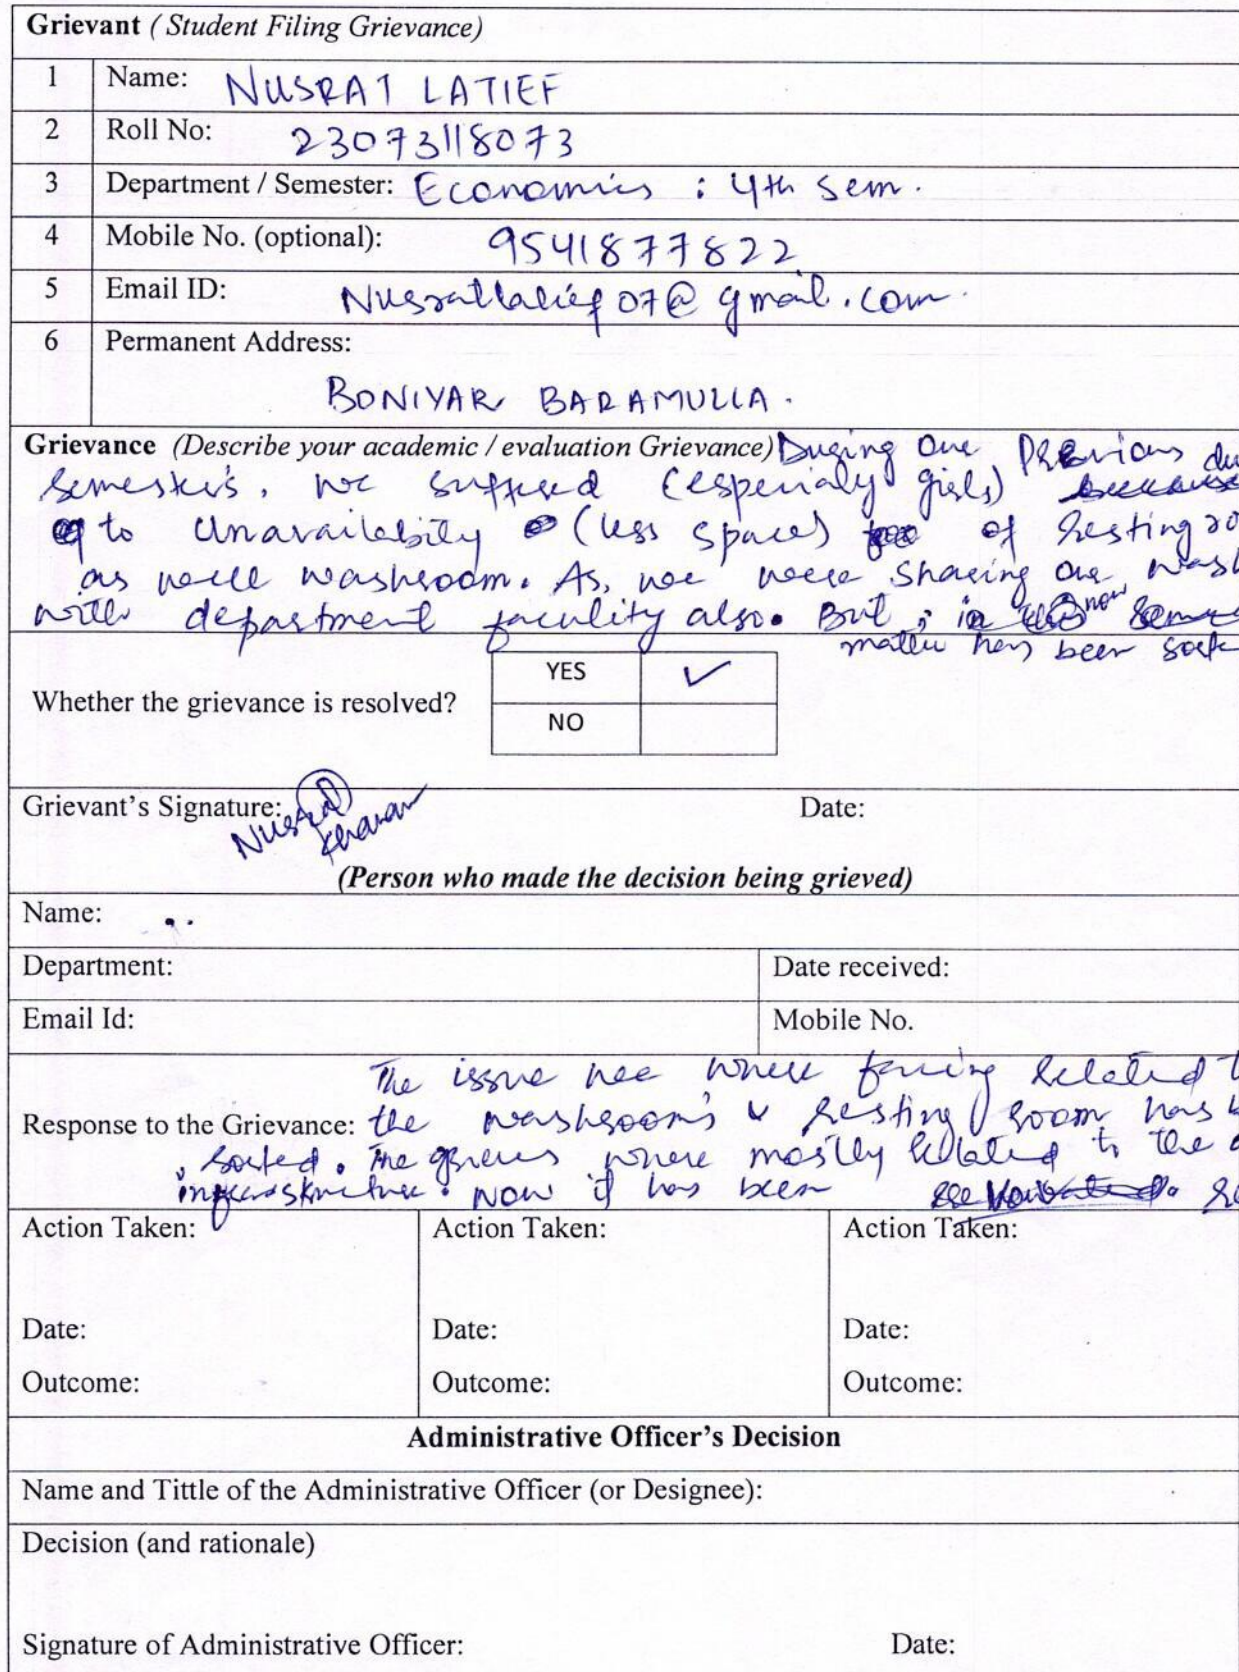 Grievant ( Student Filing Grievance)
1 Name: NUSRAT LATIEF
2 Roll No: 23073118073
3 Department / Semester: Economics : 4th Sem.
4 Mobile No. (optional): 9541877822
5 Email ID: Nusratlatief07@gmail.com.
6 Permanent Address:
BONIYAR BARAMULLA.
Grievance (Describe your academic / evaluation Grievance) During Our Previous du
Semester's, we suffered (especialy girls)
to Unavailabily (less space) of Resting ro
as well washroom. As, we were sharing our wash
with department faculity also. But, now
matter has been sort
Whether the grievance is resolved?
YES ✓
NO
Grievant's Signature: Nusrat Date:
(Person who made the decision being grieved)
Name:
Department: Date received:
Email Id: Mobile No.
The issue wee where facing Related t
Response to the Grievance: the washroom's & Resting room has b
sorted. The where mostly Related to the
infrastructure. Now it has been
Action Taken: Action Taken: Action Taken:
Date: Date: Date:
Outcome: Outcome: Outcome:
Administrative Officer's Decision
Name and Tittle of the Administrative Officer (or Designee):
Decision (and rationale)
Signature of Administrative Officer: Date: